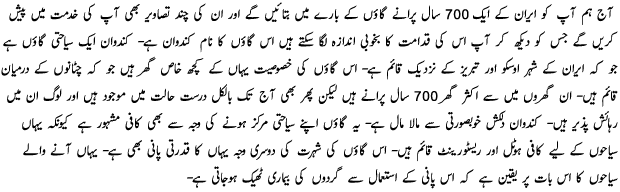 آج ہم آپ کو ایران کے ایک 700 سال پرانے گاؤں کے بارے میں بتائیں گے اور ان کی چند تصاویر بھی آپ کی خدمت میں پیش
کریں گے جس کو دیکھ کر آپ اس کی قدامت کا بخوبی اندازہ لگا سکتے ہیں اس گاؤں کا نام کندوان ہے- کندوان ایک سیاحتی گاؤں ہے
جو کہ ایران کے شہر اوسکو اور تبریز کے نزدیک قائم ہے- اس گاؤں کی خصوصیت یہاں کے کچھ خاص گھر ہیں جو کہ چٹانوں کے درمیان
قائم ہیں- ان گھروں میں سے اکثر گھر 700 سال پرانے ہیں لیکن پھر بھی آج تک بالکل درست حالت میں موجود ہیں اور لوگ ان میں
رہائش پذیر ہیں- کندوان دلکش خوبصورتی سے مالا مال ہے- یہ گاؤں اپنے سیاحتی مرکز ہونے کی وجہ سے بھی کافی مشہور ہے کیونکہ یہاں
سیاحوں کے لیے کافی ہوٹل اور ریسٹورینٹ قائم ہیں- اس گاؤں کی شہرت کی دوسری وجہ یہاں کا قدرتی پانی بھی ہے- یہاں آنے والے
سیاحوں کا اس بات پر یقین ہے کہ اس پانی کے استعمال سے گردوں کی بیماری ٹھیک ہوجاتی ہے-